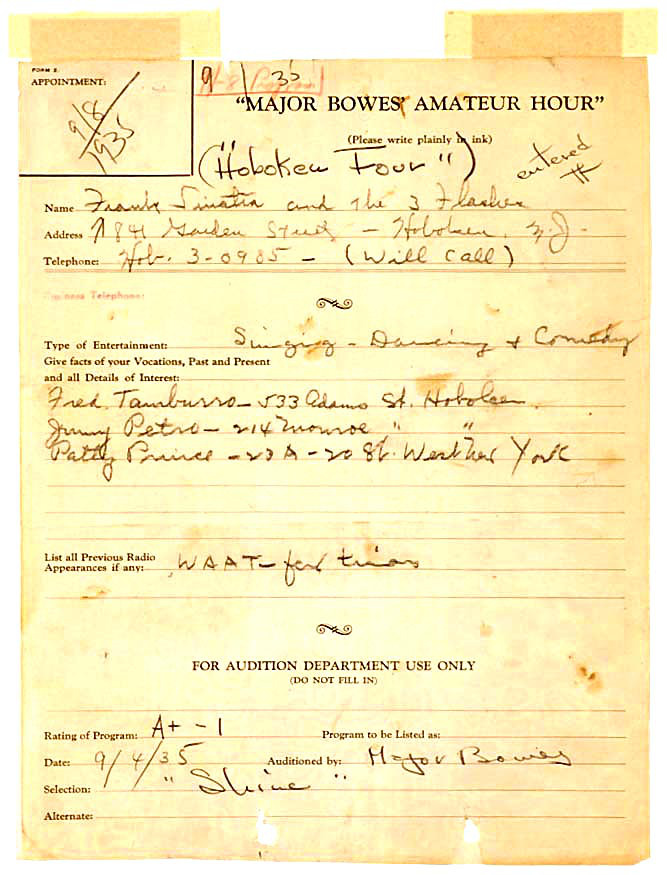 FORM 2.
APPOINTMENT:
9/8/1935
9 / 35
"MAJOR BOWES' AMATEUR HOUR"
(Please write plainly in ink)
("Hoboken Four")
entered
Name Frank Sinatra and the 3 Flashes
Address 841 Garden Street - Hoboken, N.J.
Telephone: Hob. 3-0985 - (Will Call)
Business Telephone:
Type of Entertainment: Singing - Dancing & Comedy
Give facts of your Vocations, Past and Present
and all Details of Interest:
Fred. Tamburro - 533 Adams St. Hoboken.
Jimmy Petro - 214 Monroe " "
Patty Prince - 23 A - 20 St. West New York
List all Previous Radio
Appearances if any: WAAT - few times
FOR AUDITION DEPARTMENT USE ONLY
(DO NOT FILL IN)
Rating of Program: A+ - 1 Program to be Listed as:
Date: 9/4/35 Auditioned by: Major Bowes
Selection: "Shine"
Alternate: